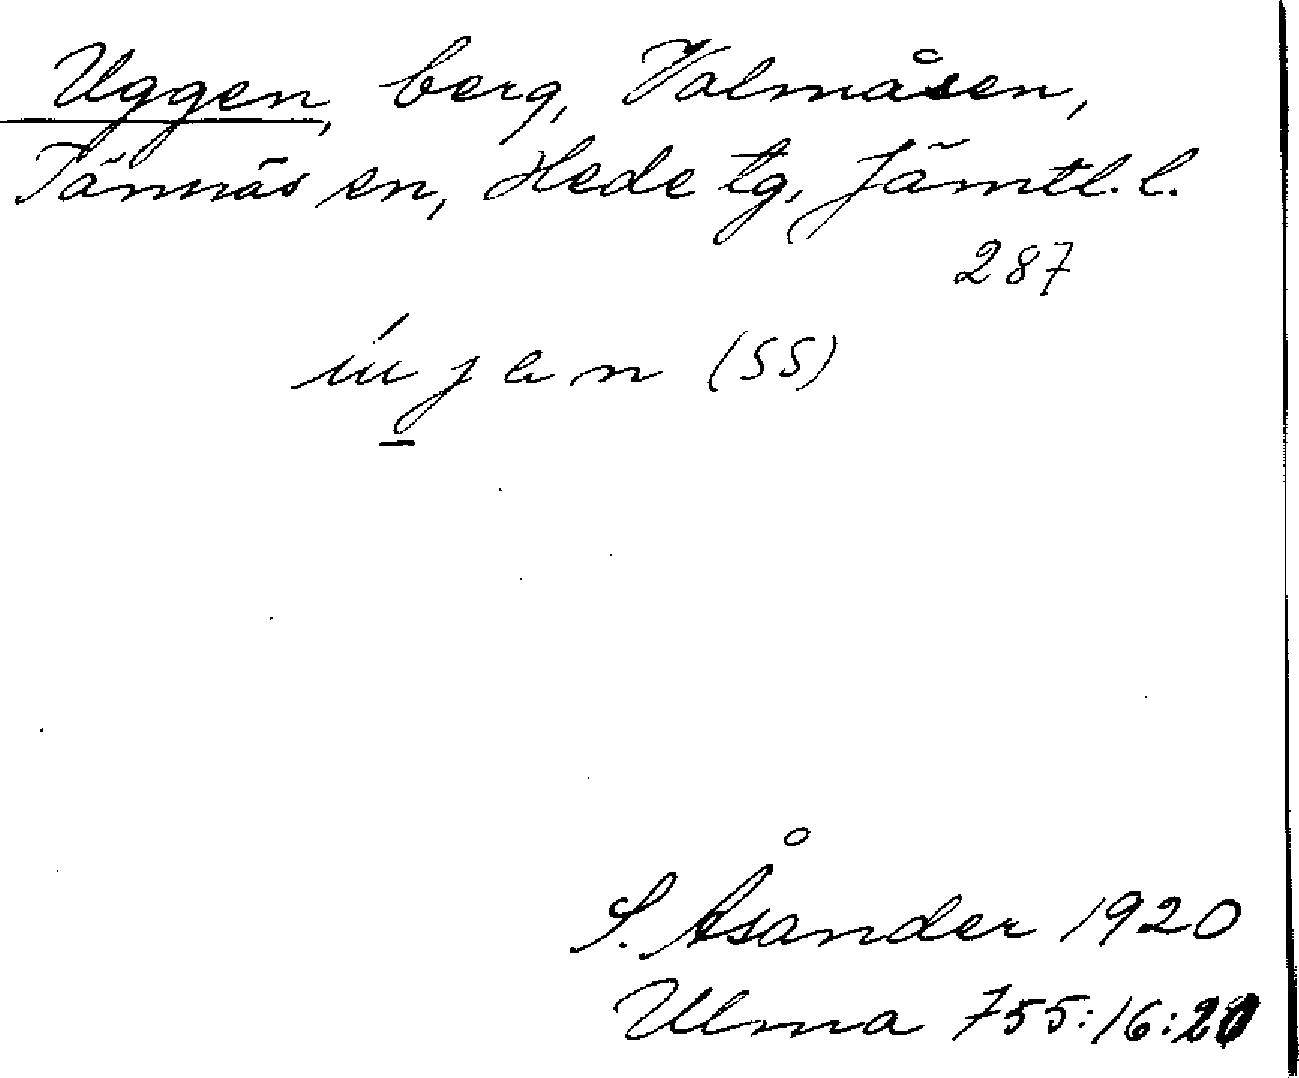 Uggen, berg, Valmåsen,
Tännäs sn, Hede tg, Jämtl. l.
287
(SS)
S. Åsander 1920
Ulma 755:16: